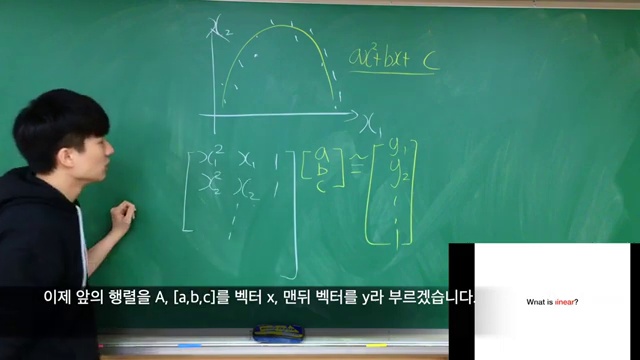 x₂
ax²+bx+c
x₁
x₁² x₁ 1 a y₁
x₂² x₂ 1 b ≅ y₂
c
이제 앞의 행렬을 A, [a,b,c]를 벡터 x, 맨뒤 벡터를 y라 부르겠습니다.
What is linear?